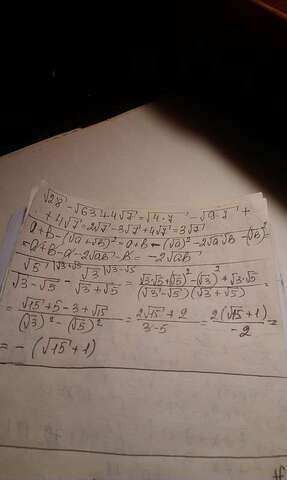 √28 - √63 + 4√7 = √4·7 - √9·7 +
+ 4√7 = 2√7 - 3√7 + 4√7 = 3√7
a+b-(√a+√b)² = a+b-(√a)² - 2√a√b - (√b)²
= a+b-a-2√ab-b = -2√ab
√5/(√3-√5) - √3/(√3+√5) = (√3·√5+(√5)²-(√3)²+√3·√5)/((√3-√5)(√3+√5)) =
= (√15+5-3+√15)/((√3)²-(√5)²) = (2√15+2)/(3-5) = 2(√15+1)/(-2) =
= -(√15+1)